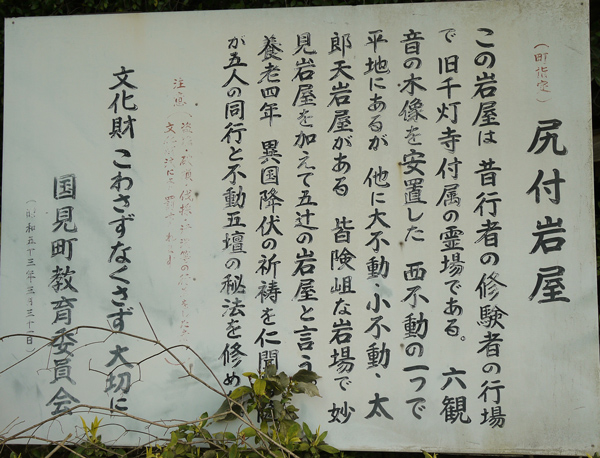 （町指定）
尻付岩屋
この岩屋は 昔行者の修験者の行場
で旧千灯寺付属の霊場である。六観
音の木像を安置した 西不動の一つで
平地にあるが 他に大不動・小不動・太
郎天岩屋がある 皆険岨な岩場で妙
見岩屋を加えて五辻の岩屋と言う
養老四年 異国降伏の祈祷を仁聞
が五人の同行と不動五壇の秘法を修め
注意
文化財 こわさずなくさず 大切に
国見町教育委員会
（昭和五十三年三月三十一日）